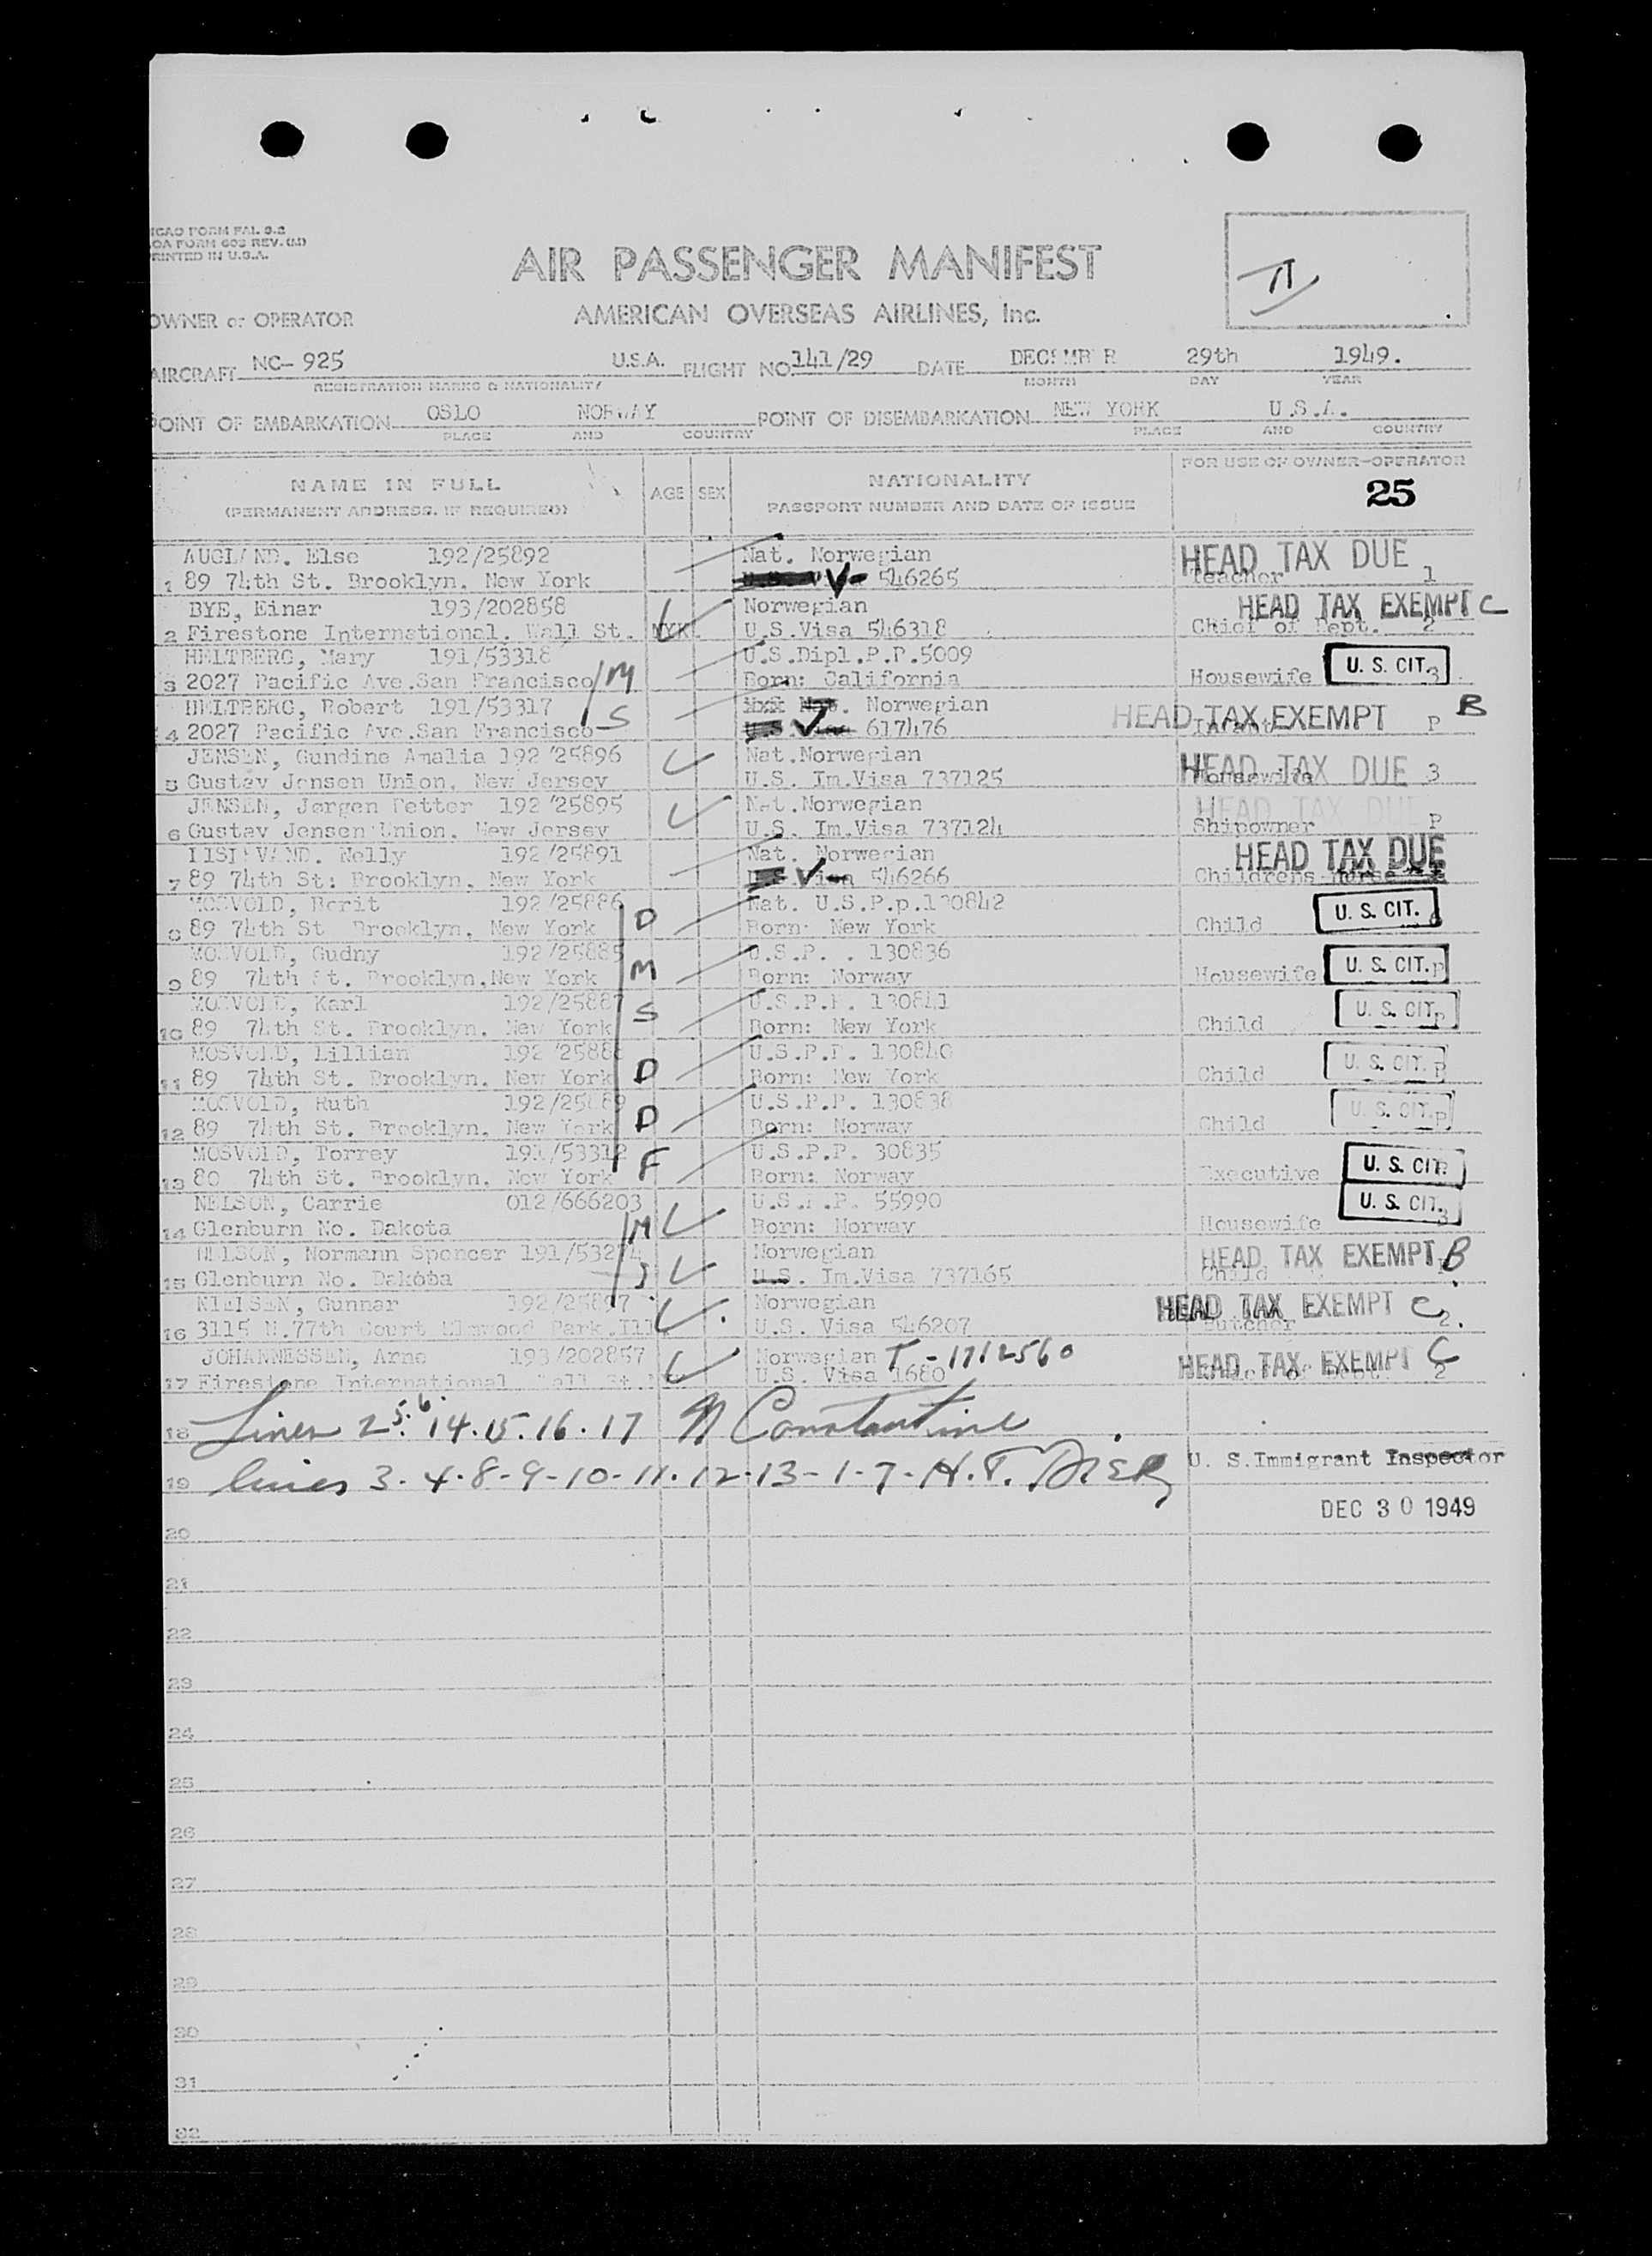 ICAO FORM FAL 9.2
OA FORM 603 REV.
PRINTED IN U.S.A.
AIR PASSENGER MANIFEST
AMERICAN OVERSEAS AIRLINES, Inc.
II
OWNER or OPERATOR
AIRCRAFT NC- 925 U.S.A. FLIGHT NO. 141/29 DATE DECEMBER 29th 1949.
REGISTRATION MARKS & NATIONALITY MONTH DAY YEAR
POINT OF EMBARKATION OSLO NORWAY POINT OF DISEMBARKATION NEW YORK U.S.A.
PLACE AND COUNTRY PLACE AND COUNTRY
NAME IN FULL
(PERMANENT ADDRESS, IF REQUIRED)
AGE SEX
NATIONALITY
PASSPORT NUMBER AND DATE OF ISSUE
FOR USE OF OWNER-OPERATOR
25
AUGLAND. Else 192/25892 Nat. Norwegian HEAD TAX DUE
1 89 74th St. Brooklyn. New York V 546265 Teacher 1
BYE, Einar 193/202858 Norwegian HEAD TAX EXEMPT C
2 Firestone International. Wall St. NYK. U.S.Visa 546318 Chief of Dept. 2
HELTBERG, Mary 191/53318 U.S.Dipl.P.P.5009
3 2027 Pacific Ave.San Francisco M Born: California Housewife U. S. CIT. 3
HELTBERG, Robert 191/53317 Nat. Norwegian HEAD TAX EXEMPT B
4 2027 Pacific Ave.San Francisco S V 617476 Infant P
JENSEN, Gundine Amalia 192/25896 Nat.Norwegian HEAD TAX DUE
5 Gustav Jensen Union. New Jersey U.S. Im.Visa 737125 Housewife 3
JENSEN, Jørgen Petter 192/25895 Nat.Norwegian HEAD TAX DUE
6 Gustav Jensen Union. New Jersey U.S. Im.Visa 737124 Shipowner P
Nelly 192/25891 Nat. Norwegian HEAD TAX DUE
7 89 74th St: Brooklyn, New York V 546266 Childrens Nurse
MOSVOLD, Berit 192/25886 Nat. U.S.P.p.130842
8 89 74th St Brooklyn, New York D Born: New York Child U. S. CIT.
MOSVOLD, Gudny 192/25885 U.S.P. . 130836
9 89 74th St. Brooklyn,New York M Born: Norway Housewife U. S. CIT. P
MOSVOLD, Karl 192/25887 U.S.P.P. 130841
10 89 74th St. Brooklyn, New York S Born: New York Child U. S. CIT. P
MOSVOLD, Lillian 192/25888 U.S.P.P. 130840
11 89 74th St. Brooklyn. New York D Born: New York Child U. S. CIT. P
MOSVOLD, Ruth 192/25889 U.S.P.P. 130838
12 89 74th St. Brooklyn, New York D Born: Norway Child U. S. CIT. P
MOSVOLD, Torrey 191/53312 U.S.P.P. 30835
13 80 74th St. Brooklyn. New York F Born: Norway Executive U. S. CIT.
NELSON, Carrie 012/666203 U.S.P.P. 55990
14 Glenburn No. Dakota M Born: Norway Housewife U. S. CIT. 3
NELSON, Normann Spencer 191/53274 Norwegian HEAD TAX EXEMPT B
15 Glenburn No. Dakota S U.S. Im.Visa 737165 Child
NIELSEN, Gunnar 192/25897 Norwegian HEAD TAX EXEMPT C
16 3115 N.77th Court Elmwood Park.Ill. U.S. Visa 546207 Butcher 2.
JOHANNESSEN, Arne 193/202857 Norwegian T-1712560 HEAD TAX EXEMPT C
17 Firestone International Wall St. U.S. Visa 1680 Chief of Dept. 2
18 Lines 2 5. 6. 14. 15. 16. 17 N Constantine
19 lines 3-4-8-9-10-11-12-13-1-7- H.T. U. S. Immigrant Inspector
20 DEC 30 1949
21
22
23
24
25
26
27
28
29
30
31
32